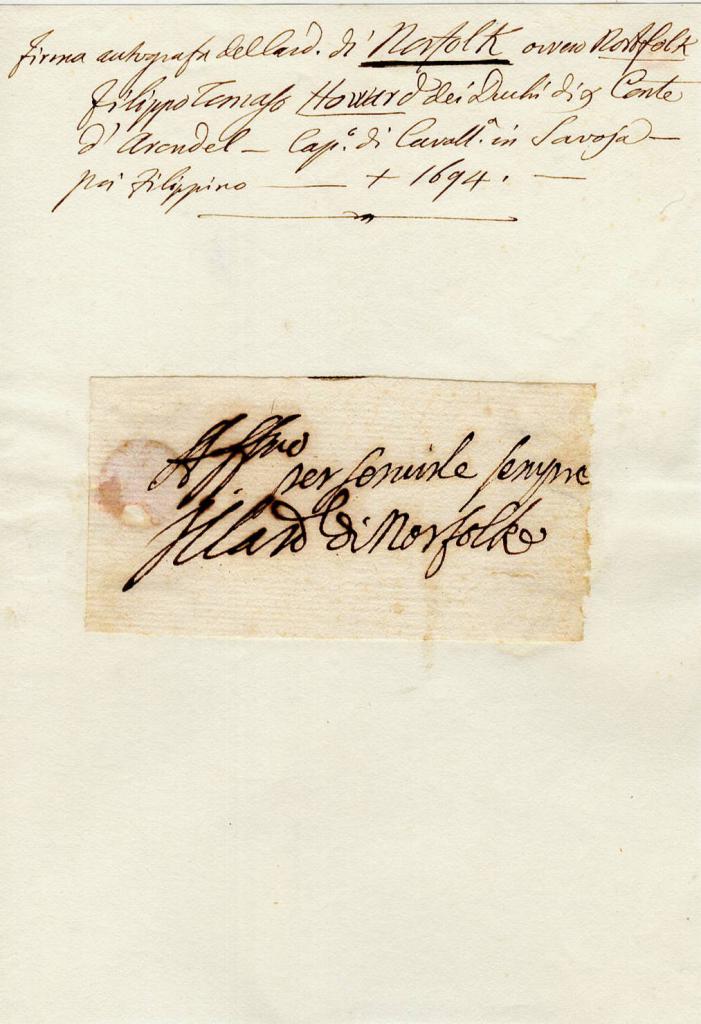 Firma autografa del Card. di Norfolk ovvero Nortfolk
Filippo Tomaso Howard dei Duchi di Conte
d'Arondel — Cap.º di Cavall.ª in Savoja —
poi Filippino — + 1694. —
Affmo
per seruirle sempre
Il Card. di Norfolke